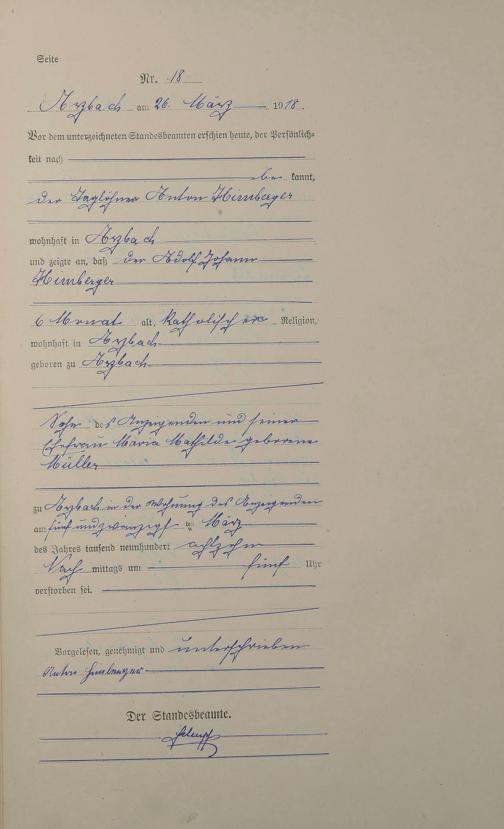 Seite
Nr. 18
Arzbach am 26. März 1918.
Vor dem unterzeichneten Standesbeamten erschien heute, der Persönlich-
keit nach
be kannt,
der Taglöhner Anton Himberger
wohnhaft in Arzbach
und zeigte an, daß der Adolf Johann
Himberger
6 Monate alt, katholischer Religion,
wohnhaft in Arzbach
geboren zu Arzbach
Sohn des Anzeigenden und seiner
Ehefrau Maria Mathilde geborene
Müller
zu Arzbach in der Wohnung des Anzeigenden
am fünf und zwanzigsten März
des Jahres tausend neunhundert achtzehn
Nach mittags um fünf Uhr
verstorben sei.
Vorgelesen, genehmigt und unterschrieben
Anton Himberger
Der Standesbeamte.